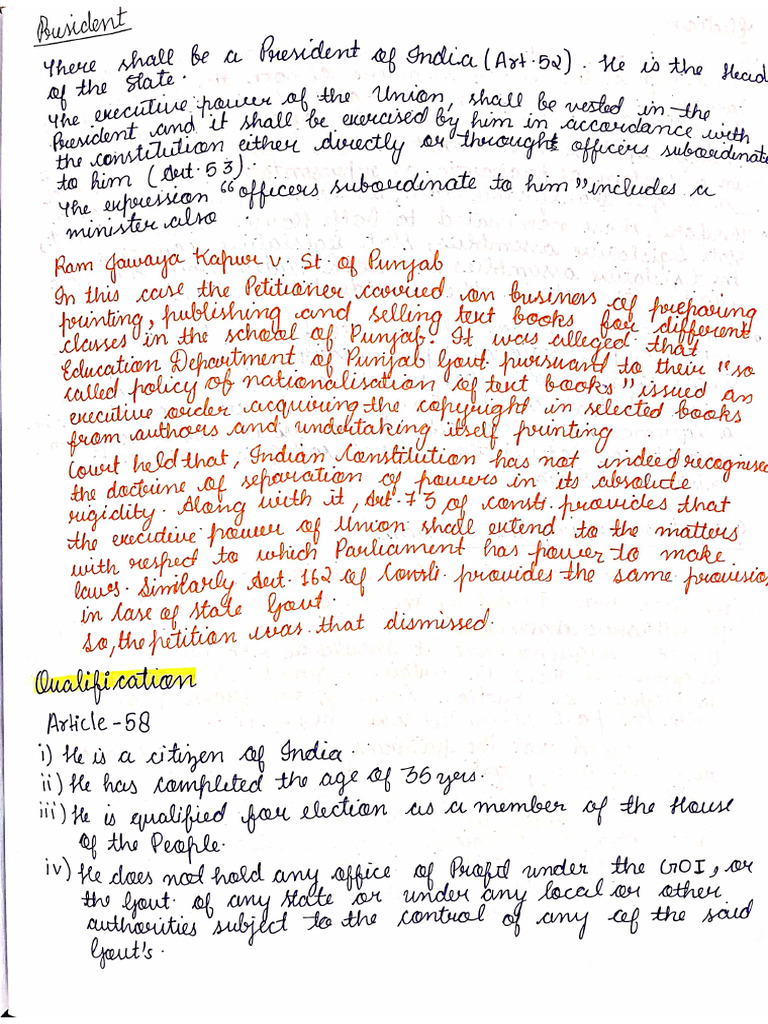 President
There shall be a President of India (Art.52). He is the Head
of the State.
The executive power of the Union, shall be vested in the
President and it shall be exercised by him in accordance with
the constitution either directly or throught officers subordinate
to him (Art.53).
The expression "officers subordinate to him" includes a
minister also.
Ram Jawaya Kapur v. St. of Punjab
In this case the Petitioner carried on business of preparing
printing, publishing and selling text books for different
classes in the school of Punjab. It was alleged that
Education Department of Punjab Govt. pursuant to their "so
called policy of nationalisation of text books" issued an
executive order acquiring the copyright in selected books
from authors and undertaking itself printing
Court held that, Indian Constitution has not indeed recognise
the doctrine of separation of powers in its absolute
rigidity. Along with it, Art.73 of consti. provides that
the executive power of Union shall extend to the matters
with respect to which Parliament has power to make
laws. Similarly Art.162 of Consti. provides the same provision
in case of state Govt.
So, the petition was that dismissed.
Qualification
Article-58
i) He is a citizen of India
ii) He has completed the age of 35 yers.
iii) He is qualified for election as a member of the House
of the People.
iv) He does not hold any office of Profit under the GOI, or
the Govt. of any state or under any local or other
authorities subject to the control of any of the said
Govt's.